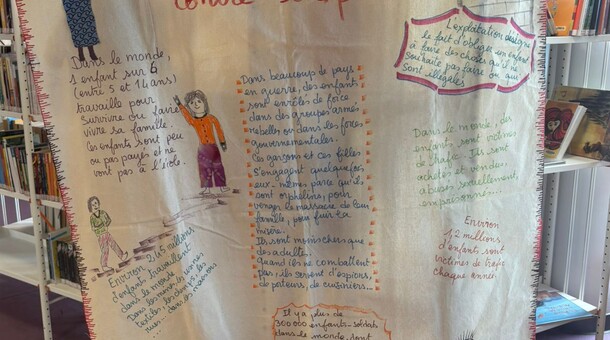 contre
Dans le monde,
1 enfant sur 6
(entre 5 et 14 ans)
travaille pour
survivre ou faire
vivre sa famille.
Ces enfants sont peu
ou pas payés et ne
vont pas à l'école.
Environ 245 millions
d'enfants travaillent
dans le monde.
Dans les mines, les usines
textiles, les champs, les
rues... dans les maisons
Dans beaucoup de pays
en guerre, des enfants
sont enrôlés de force
dans des groupes armés
rebelles ou dans les forces
gouvernementales.
Ces garçons et ces filles
s'engagent quelquefois
eux-mêmes parce qu'ils
sont orphelins, pour
venger le massacre de leur
famille, pour fuir la
misère.
Ils sont moins chers que
des adultes.
quand ils ne combattent
pas, ils servent d'espions,
de porteurs, de cuisiniers...
Il y a plus de
300 000 enfants-soldats
dans le monde, sont
L'exploitation désigne
le fait d'obliger un enfant
à faire des choses qu'il ne
souhaite pas faire ou qui
sont illégales
Dans le monde, des
enfants sont victimes
de trafic. Ils sont
achetés et vendus,
abusés sexuellement,
emprisonnés...
Environ
1,2 millions
d'enfants sont
victimes de trafic
chaque année.